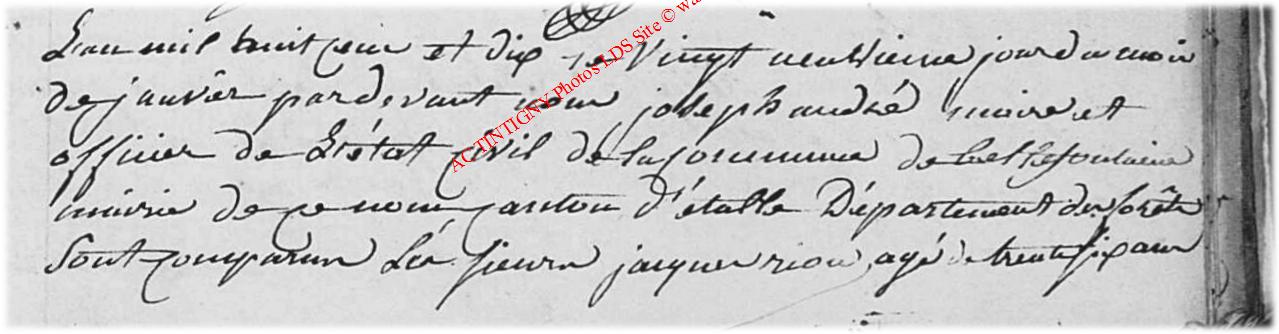 L'an mil huit cent et dix le Vingt neuvieme jour du mois
de janvier pardevant nous joseph andré maire et
officier de L'état Civil de la Commune de bellefontaine
mairie de ce nom canton d'étalle Département des forêts
Sont comparus Les sieurs jacques riou agé de trente six ans
ACTINTIGNY Photos LDS Site © wa